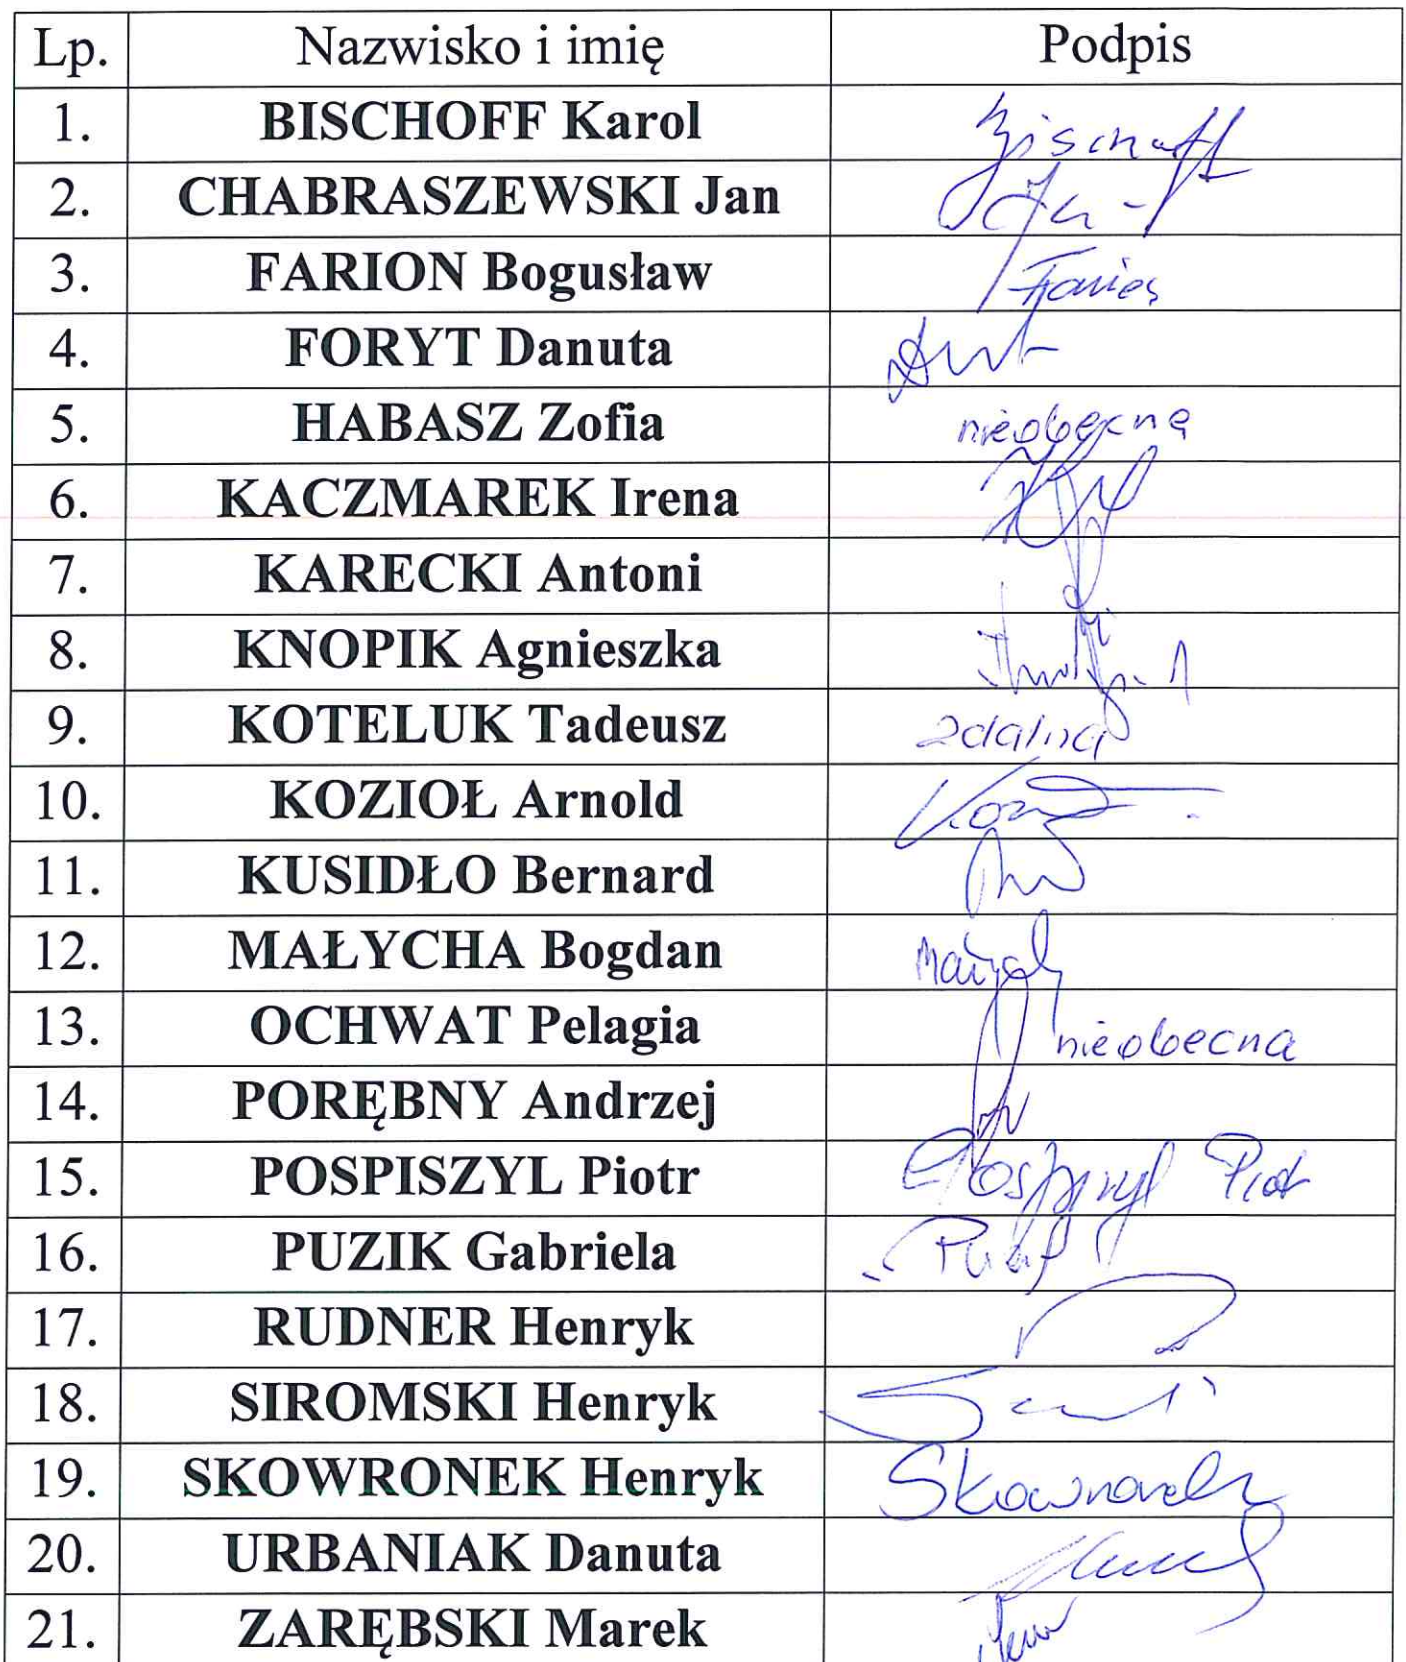 Lp. Nazwisko i imię Podpis
1. BISCHOFF Karol Bischoff
2. CHABRASZEWSKI Jan
3. FARION Bogusław
4. FORYT Danuta
5. HABASZ Zofia nieobecna
6. KACZMAREK Irena
7. KARECKI Antoni
8. KNOPIK Agnieszka
9. KOTELUK Tadeusz zdalna
10. KOZIOŁ Arnold
11. KUSIDŁO Bernard
12. MAŁYCHA Bogdan
13. OCHWAT Pelagia nieobecna
14. PORĘBNY Andrzej
15. POSPISZYL Piotr Pospiszyl Piotr
16. PUZIK Gabriela
17. RUDNER Henryk
18. SIROMSKI Henryk
19. SKOWRONEK Henryk Skowronek
20. URBANIAK Danuta
21. ZARĘBSKI Marek